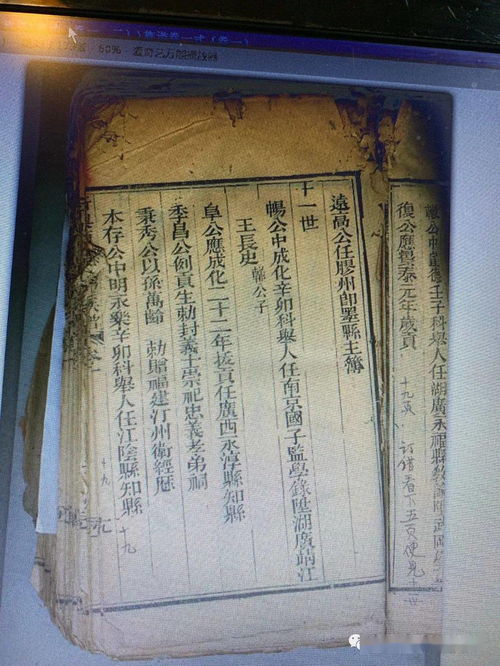 公中宣德壬子科舉人任湖廣永福縣教諭陞武岡學
復公應景泰元年歲貢
十九頁 订错看下五页便見十一世
遠高公任膠州即墨縣主簿
十一世
暢公中成化辛卯科舉人任南京國子監學錄陞湖廣靖江
王長史 翰公子
阜公應成化二十二年拔貢任廣西永淳縣知縣
季昌公例貢生勅封義士崇祀忠義孝弟祠
秉秀公以孫萬齡 勅贈福建汀州衛經歷
本存公中明永樂辛卯科舉人任江陰縣知縣
十九
十九